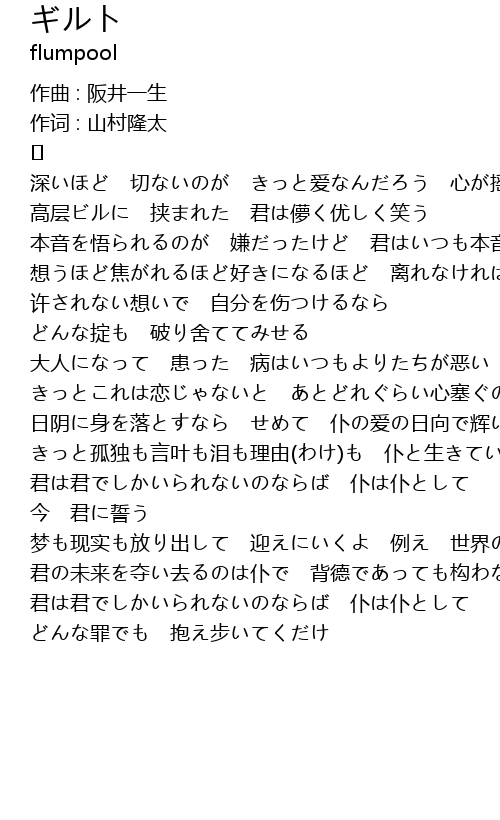 ギルト
flumpool
作曲 : 阪井一生
作词 : 山村隆太
[]
深いほど　切ないのが　きっと爱なんだろう　心が揺
高层ビルに　挟まれた　君は儚く优しく笑う
本音を悟られるのが　嫌だったけど　君はいつも本音
想うほど焦がれるほど好きになるほど　离れなければ
许されない想いで　自分を伤つけるなら
どんな掟も　破り舍ててみせる
大人になって　患った　病はいつもよりたちが悪い
きっとこれは恋じゃないと　あとどれぐらい心塞ぐの
日阴に身を落とすなら　せめて　仆の爱の日向で辉い
きっと孤独も言叶も泪も理由(わけ)も　仆と生きてい
君は君でしかいられないのならば　仆は仆として
今　君に誓う
梦も现实も放り出して　迎えにいくよ　例え　世界の
君の未来を夺い去るのは仆で　背德であっても构わな
君は君でしかいられないのならば　仆は仆として
どんな罪でも　抱え歩いてくだけ